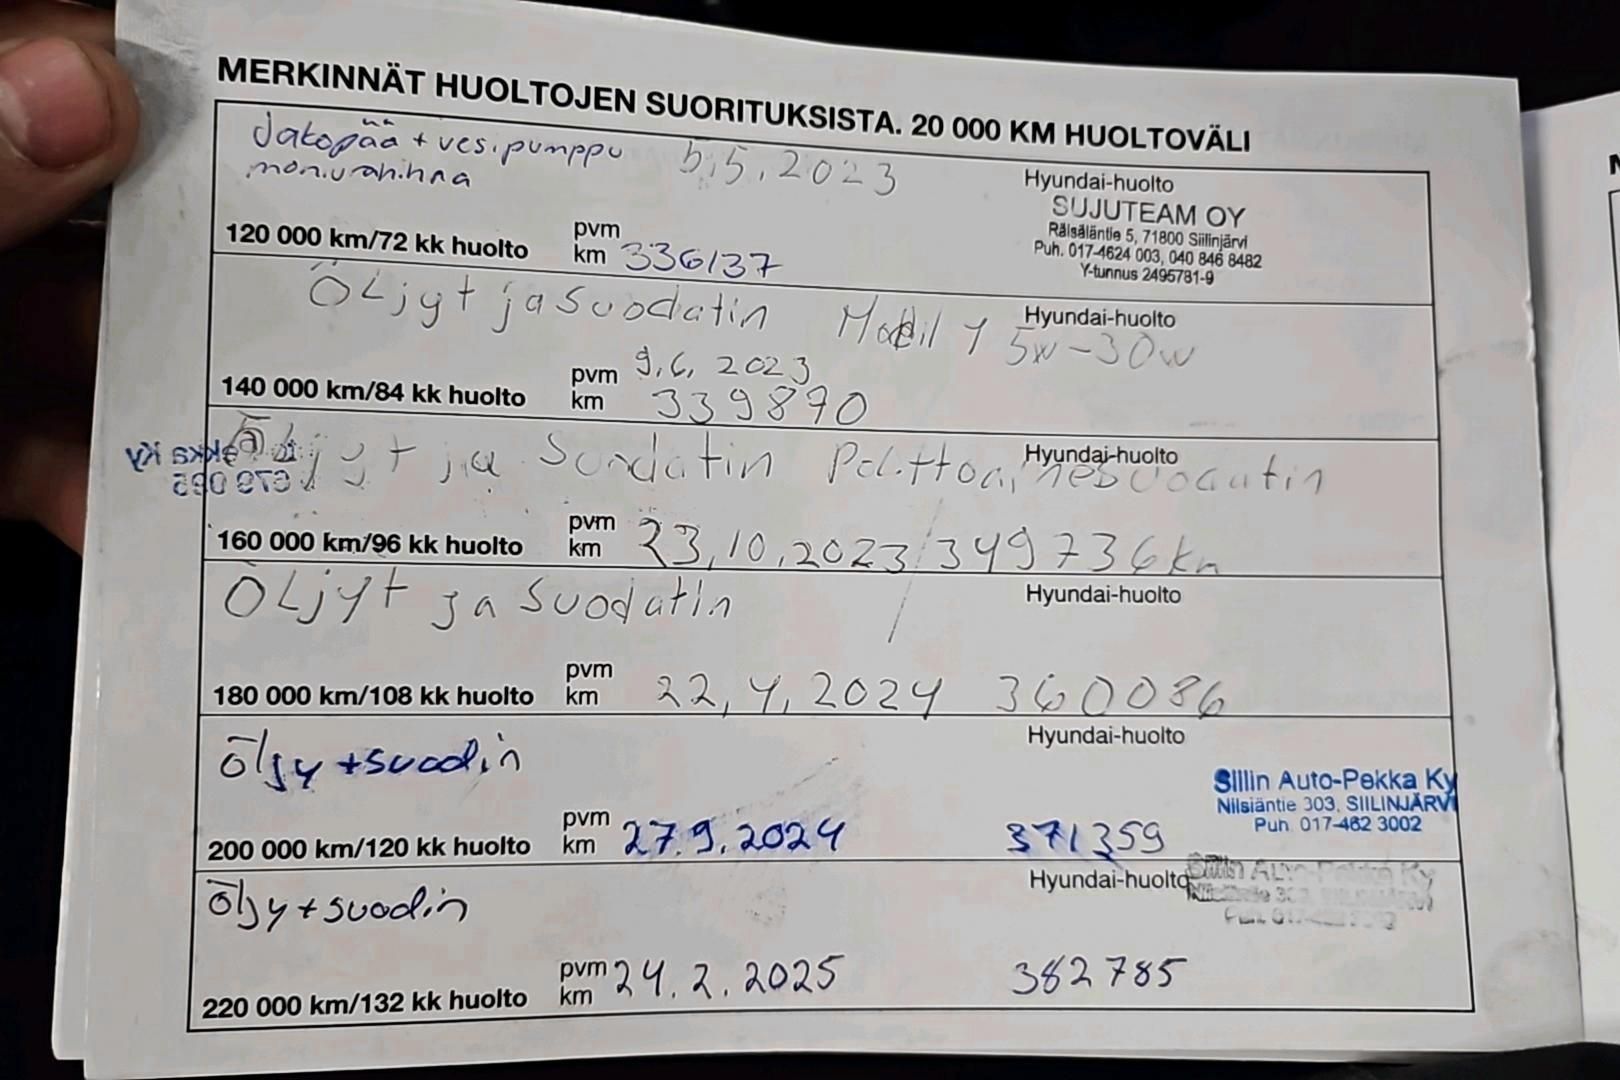 MERKINNÄT HUOLTOJEN SUORITUKSISTA. 20 000 KM HUOLTOVÄLI
Jakopää + vesipumppu 5.5.2023
moniurahihna
Hyundai-huolto
SUJUTEAM OY
Räisäläntie 5, 71800 Siilinjärvi
Puh. 017-4624 003, 040 846 8482
Y-tunnus 2495781-9
120 000 km/72 kk huolto
pvm
km 336137
Öljyt ja suodatin Mobil 1 5w-30w
Hyundai-huolto
140 000 km/84 kk huolto
pvm 9.6.2023
km 339870
Öljyt ja Suodatin Polttoainesuodatin
Hyundai-huolto
160 000 km/96 kk huolto
pvm
km 23.10.2023/349736km
Öljyt ja suodatin
Hyundai-huolto
180 000 km/108 kk huolto
pvm
km 22.4.2024 360086
öljy + suodin
Hyundai-huolto
Siilin Auto-Pekka Ky
Nilsiäntie 303, SIILINJÄRVI
Puh. 017-462 3002
200 000 km/120 kk huolto
pvm
km 27.9.2024 371359
öljy + suodin
Hyundai-huolto
Siilin Auto-Pekka Ky
220 000 km/132 kk huolto
pvm 24.2.2025 382785
km